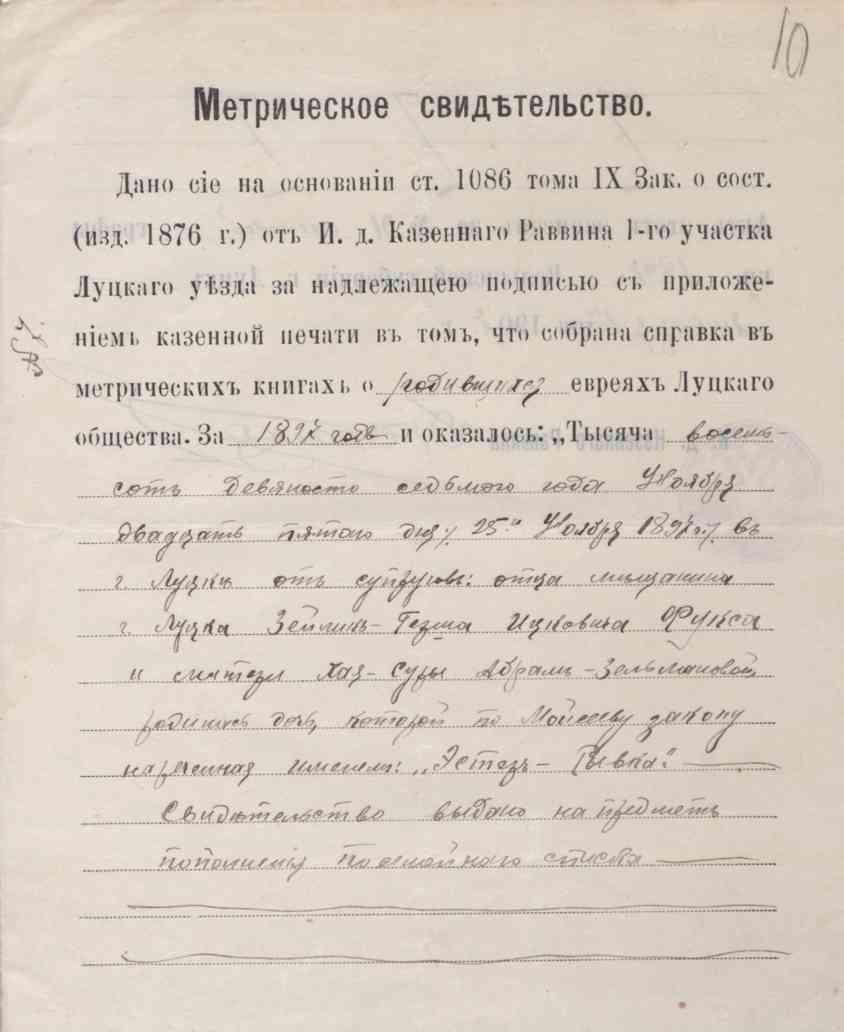 10
Метрическое свидѣтельство.
Дано сіе на основаніи ст. 1086 тома IX Зак. о сост.
(изд. 1876 г.) отъ И. д. Казеннаго Раввина 1-го участка
Луцкаго уѣзда за надлежащею подписью съ приложе-
ніемъ казенной печати въ томъ, что собрана справка въ
метрическихъ книгахъ о родившихся евреяхъ Луцкаго
общества. За 1897 годъ и оказалось: „Тысяча восемь-
сотъ девяносто седьмого года Ноября
двадцать пятаго дня /25" Ноября 1897 г./ въ
г. Луцкѣ отъ супруговъ: отца мѣщанина
г. Луцка Зейликъ- Ицковича Фукса
и матери Хая-Суры Абрамъ-Зельмановой
родилась дочь, которой по Моисееву закону
нареченная именемъ: „Эстеръ-Рывка."
Свидѣтельство выдано на предметъ
пополненія посемейного списка